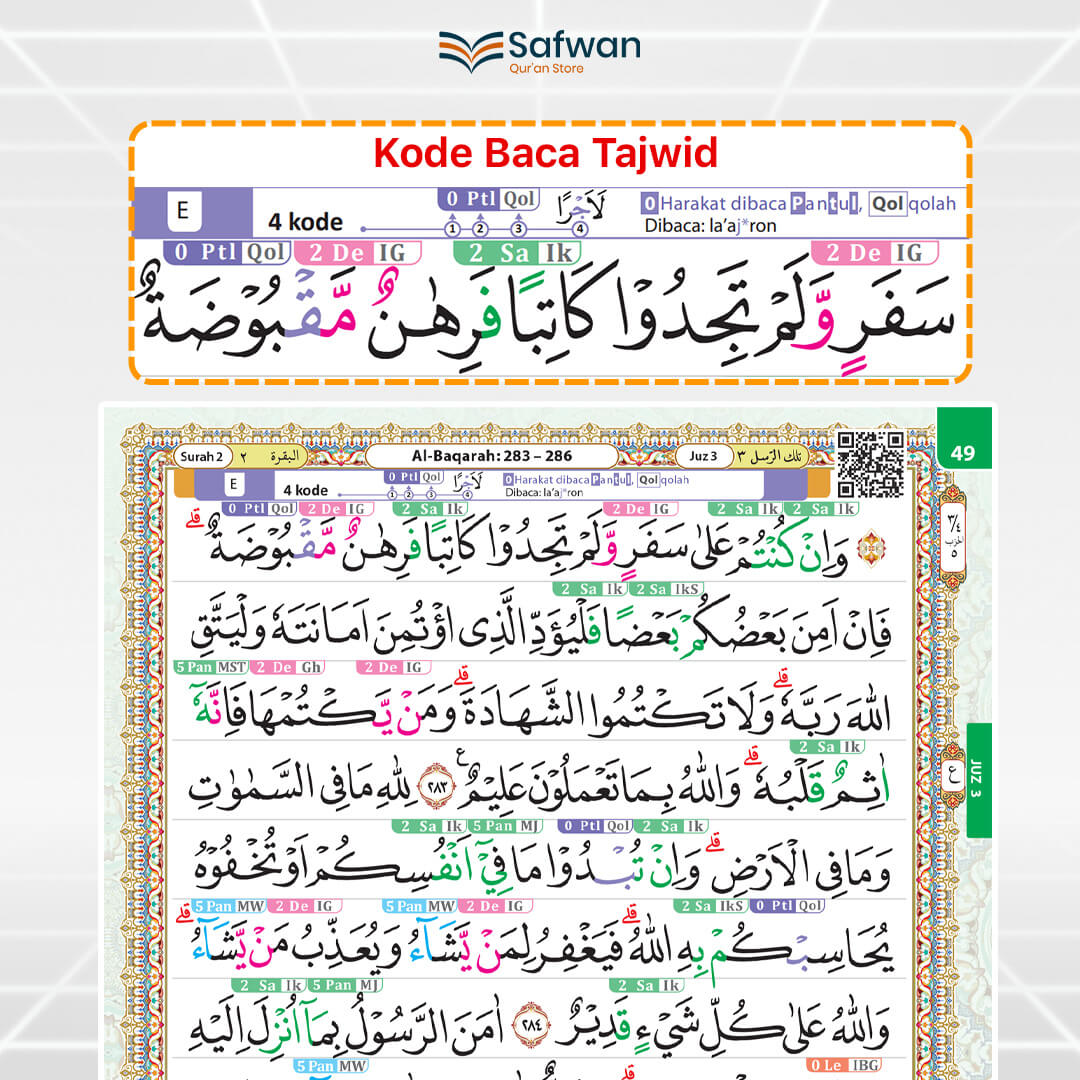 Safwan
Qur'an Store
Kode Baca Tajwid
E 4 kode 0 Ptl Qol لَاَجْرًا 0 Harakat dibaca Pantul, Qolqolah
1 2 3 4 Dibaca: la'aj*ron
0 Ptl Qol 2 De IG 2 Sa Ik 2 De IG
سَفَرٍ وَّلَمْ تَجِدُوْا كَاتِبًا فَرِهٰنٌ مَّقْبُوْضَةٌ
49
Surah 2 ٢ البقرة Al-Baqarah: 283 – 286 Juz 3 تلك الرّسل ٣
E 4 kode 0 Ptl Qol لَاَجْرًا 0 Harakat dibaca Pantul, Qolqolah
1 2 3 4 Dibaca: la'aj*ron
٣/٤
الحزب
٥
0 Ptl Qol 2 De IG 2 Sa Ik 2 De IG 2 Sa Ik 2 Sa Ik
وَاِنْ كُنْتُمْ عَلٰى سَفَرٍ وَّلَمْ تَجِدُوْا كَاتِبًا فَرِهٰنٌ مَّقْبُوْضَةٌ ۗ
2 Sa Ik 2 Sa IkS
فَاِنْ اَمِنَ بَعْضُكُمْ بَعْضًا فَلْيُؤَدِّ الَّذِى اؤْتُمِنَ اَمَانَتَهٗ وَلْيَتَّقِ
5 Pan MST 2 De Gh 2 De IG
اللّٰهَ رَبَّهٗ ۗ وَلَا تَكْتُمُوا الشَّهَادَةَ ۗ وَمَنْ يَّكْتُمْهَا فَاِنَّهٗٓ
2 Sa Ik
اٰثِمٌ قَلْبُهٗ ۗ وَاللّٰهُ بِمَا تَعْمَلُوْنَ عَلِيْمٌ ࣖ ٢٨٣ لِلّٰهِ مَا فِى السَّمٰوٰتِ
ع
JUZ 3
2 Sa Ik 5 Pan MJ 0 Ptl Qol 2 Sa Ik
وَمَا فِى الْاَرْضِ ۗ وَاِنْ تُبْدُوْا مَا فِيْٓ اَنْفُسِكُمْ اَوْ تُخْفُوْهُ
5 Pan MW 2 De IG 5 Pan MW 2 De IG 2 Sa IkS 0 Ptl Qol
يُحَاسِبْكُمْ بِهِ اللّٰهُ ۗ فَيَغْفِرُ لِمَنْ يَّشَاۤءُ وَيُعَذِّبُ مَنْ يَّشَاۤءُ ۗ
2 Sa Ik 5 Pan MJ 2 Sa Ik
وَاللّٰهُ عَلٰى كُلِّ شَيْءٍ قَدِيْرٌ ٢٨٤ اٰمَنَ الرَّسُوْلُ بِمَآ اُنْزِلَ اِلَيْهِ
5 Pan MW 0 Le IBG